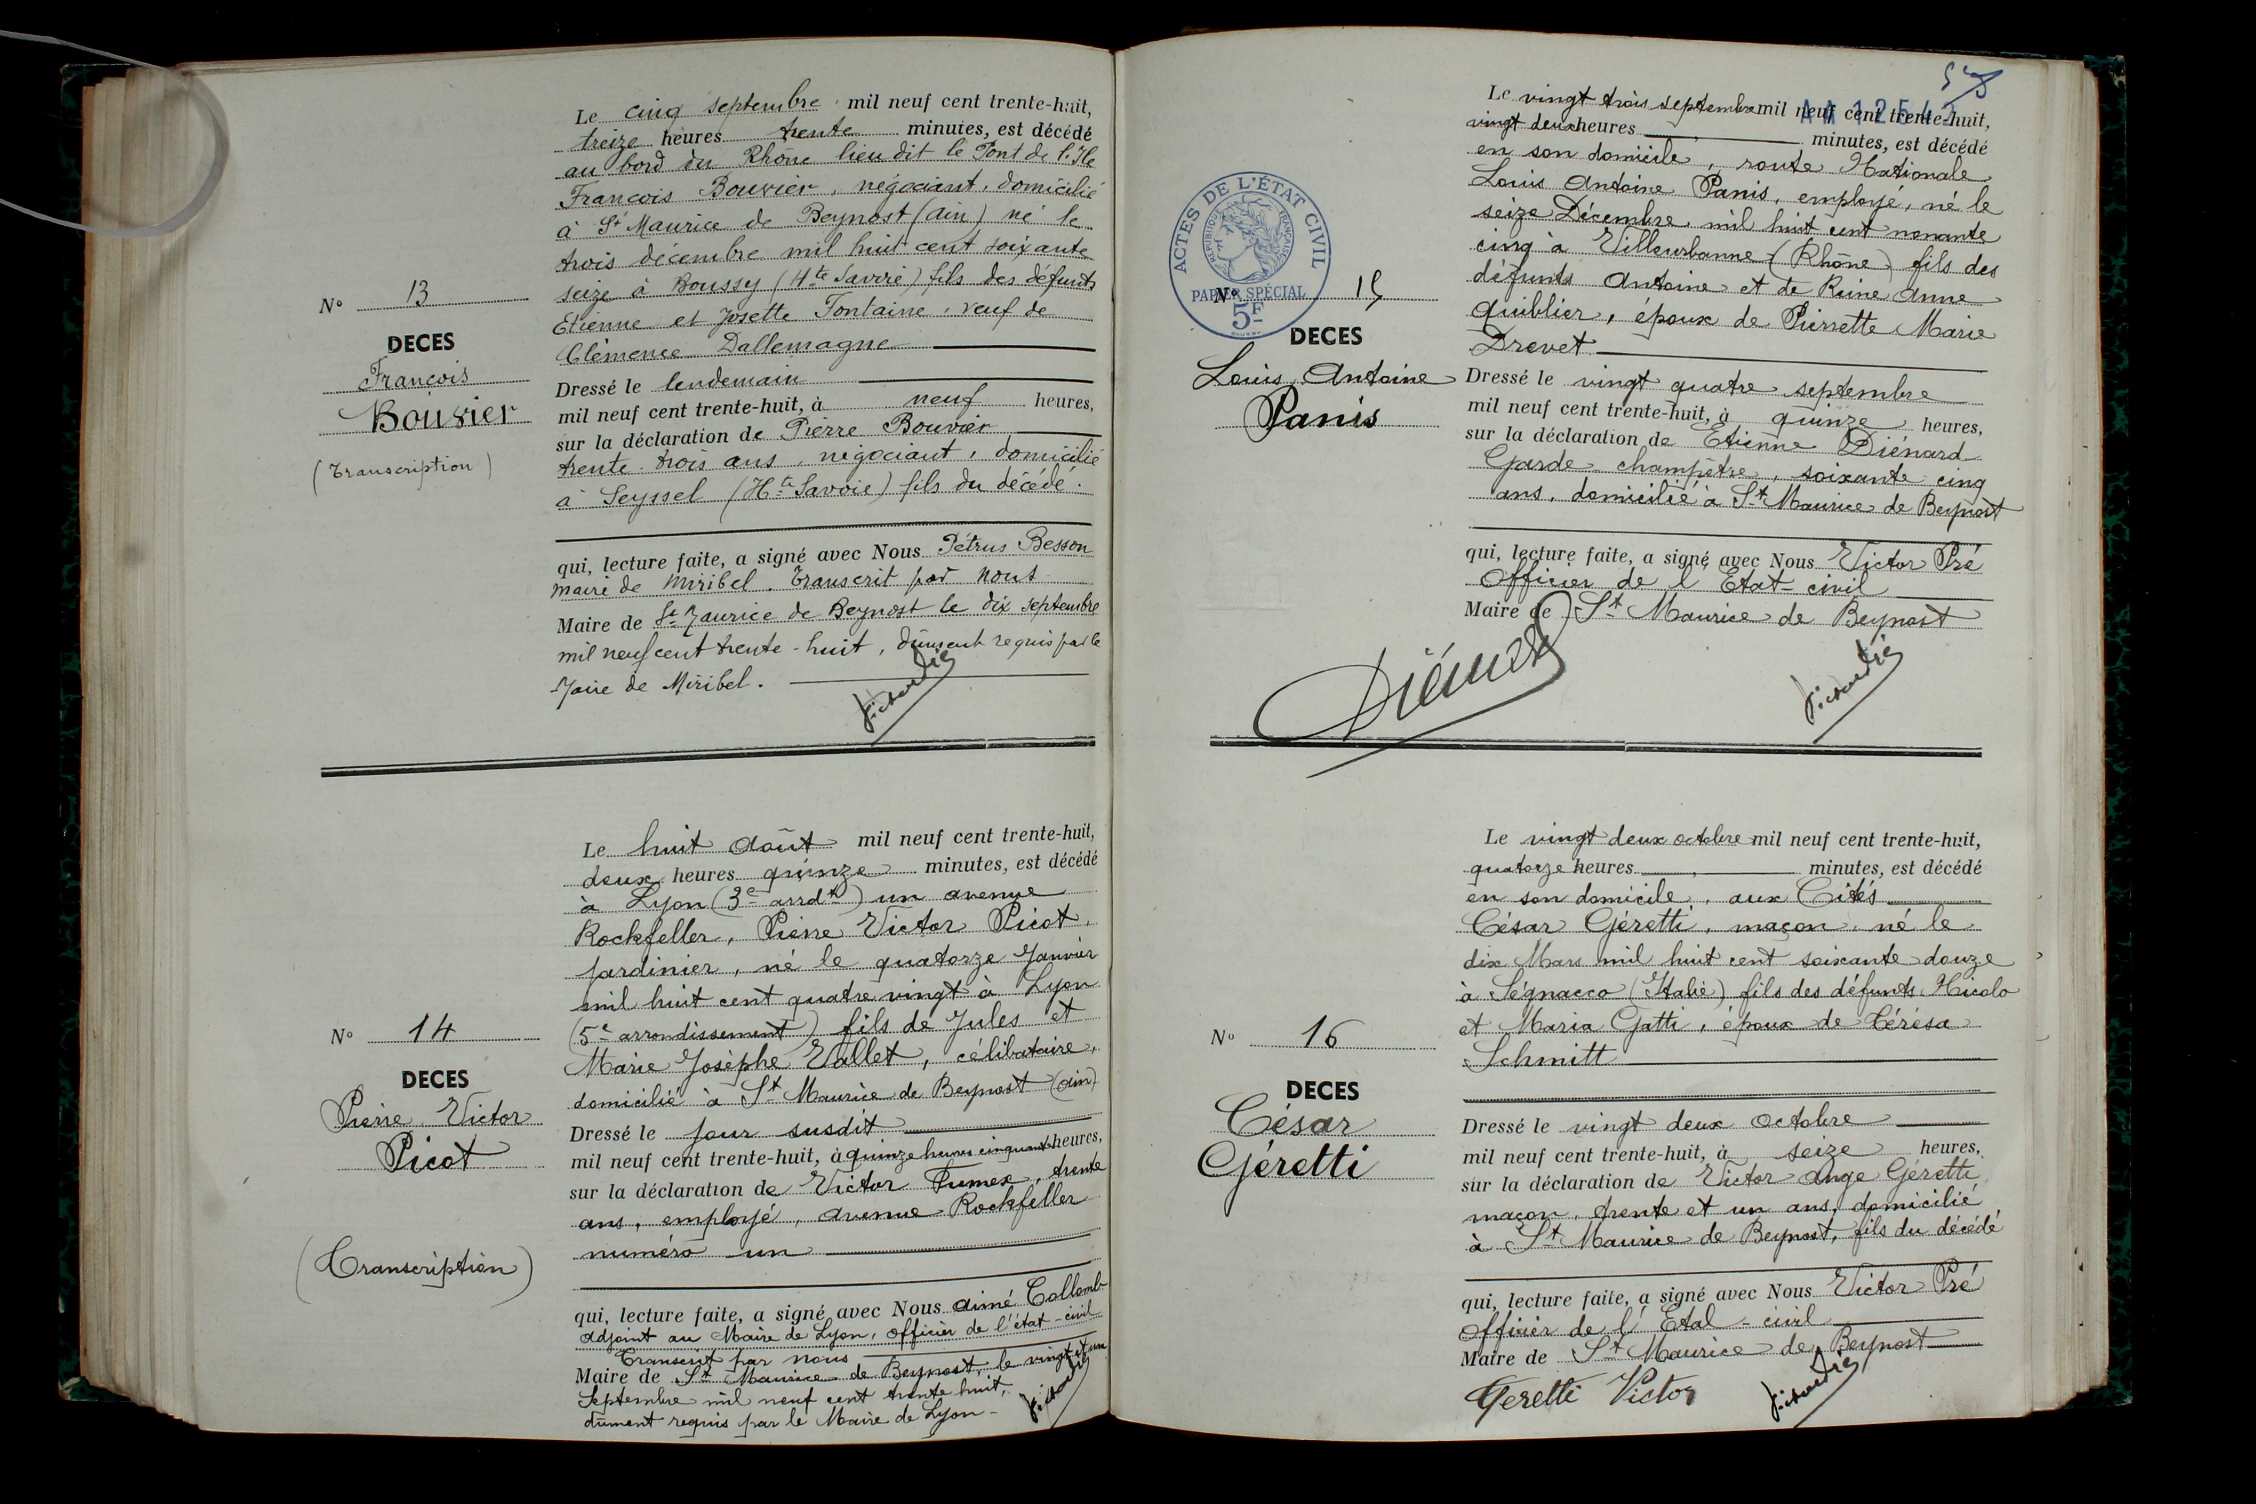 Le cinq septembre mil neuf cent trente-huit,
treize heures trente minutes, est décédé
au bord du Rhône lieu dit le Pont de l'Ile
François Bouvier, négociant, domicilié
à St Maurice de Beynost (Ain) né le
trois décembre mil huit cent soixante
seize à Boussy (Hte Savoie) fils des défunts
Etienne et Josette Fontaine, veuf de
Clémence Dallemagne
N° 13
DECES
François
Bouvier
(Transcription)
Dressé le lendemain
mil neuf cent trente-huit, à neuf heures,
sur la déclaration de Pierre Bouvier
trente-trois ans, négociant, domicilié
à Seyssel (Hte Savoie) fils du décédé.
qui, lecture faite, a signé avec Nous Pétrus Besson
maire de Miribel. Transcrit par nous
Maire de St Maurice de Beynost le dix septembre
mil neuf cent trente-huit, dûment requis par le
Maire de Miribel.
Victor Pré
Le huit août mil neuf cent trente-huit,
deux heures quinze minutes, est décédé
à Lyon (3e arrdt) un avenue
Rockfeller, Pierre Victor Picot,
jardinier, né le quatorze Janvier
mil huit cent quatre vingt à Lyon
(5e arrondissement) fils de Jules et
Marie Josèphe Vallet, célibataire,
domicilié à St Maurice de Beynost (ain)
N° 14
DECES
Pierre Victor
Picot
(Transcription)
Dressé le jour susdit
mil neuf cent trente-huit, à quinze heures cinquante heures,
sur la déclaration de Victor Fumex, trente
ans, employé, avenue Rockfeller
numéro un
qui, lecture faite, a signé avec Nous Aimé Collomb
adjoint au Maire de Lyon, officier de l'état-civil
Transcrit par nous
Maire de St Maurice de Beynost, le vingt et un
Septembre mil neuf cent trente huit,
dûment requis par le Maire de Lyon-
Victor Pré
Le vingt trois septembre mil neuf cent trente-huit,
vingt deux heures minutes, est décédé
en son domicile, route Nationale
Louis Antoine Panis, employé, né le
seize Décembre mil huit cent nonante
cinq à Villeurbanne (Rhône) fils des
défunts Antoine et de Reine Anne
Quiblier, époux de Pierrette Marie
Drevet
ACTES DE L'ÉTAT CIVIL
RÉPUBLIQUE FRANÇAISE
PAPIER SPÉCIAL
5F
N° 15
DECES
Louis Antoine
Panis
Dressé le vingt quatre septembre
mil neuf cent trente-huit, à quinze heures,
sur la déclaration de Etienne Diénard
Garde champêtre, soixante cinq
ans, domicilié à St Maurice de Beynost
qui, lecture faite, a signé avec Nous Victor Pré
Officier de l'Etat-civil
Maire de St Maurice de Beynost
Victor Pré
Le vingt deux octobre mil neuf cent trente-huit,
quatorze heures minutes, est décédé
en son domicile, aux Cités
César Géretti, maçon, né le
dix Mars mil huit cent soixante douze
à Ségnacco (Italie) fils des défunts Nicolo
et Maria Gatti, époux de Térésa
Schmitt
N° 16
DECES
César
Géretti
Dressé le vingt deux octobre
mil neuf cent trente-huit, à seize heures,
sur la déclaration de Victor Ange Géretti
maçon, trente et un ans, domicilié
à St Maurice de Beynost, fils du décédé
qui, lecture faite, a signé avec Nous Victor Pré
Officier de l'Etat-civil
Maire de St Maurice de Beynost
Geretti Victor
Victor Pré